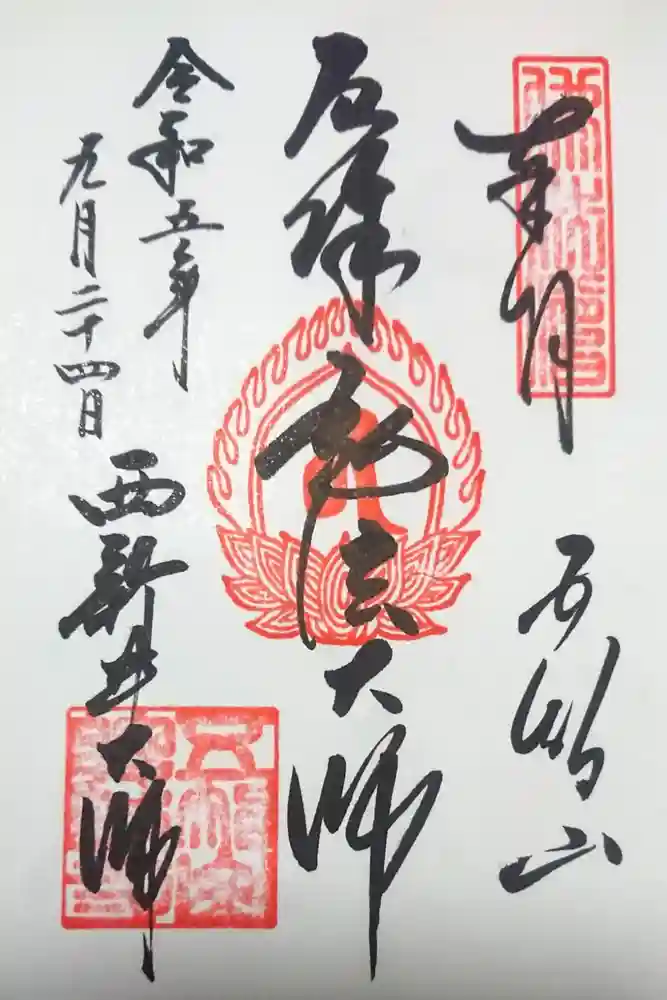 奉拝 五智山
厄除 弘法大師
令和五年
九月二十四日
西新井大師